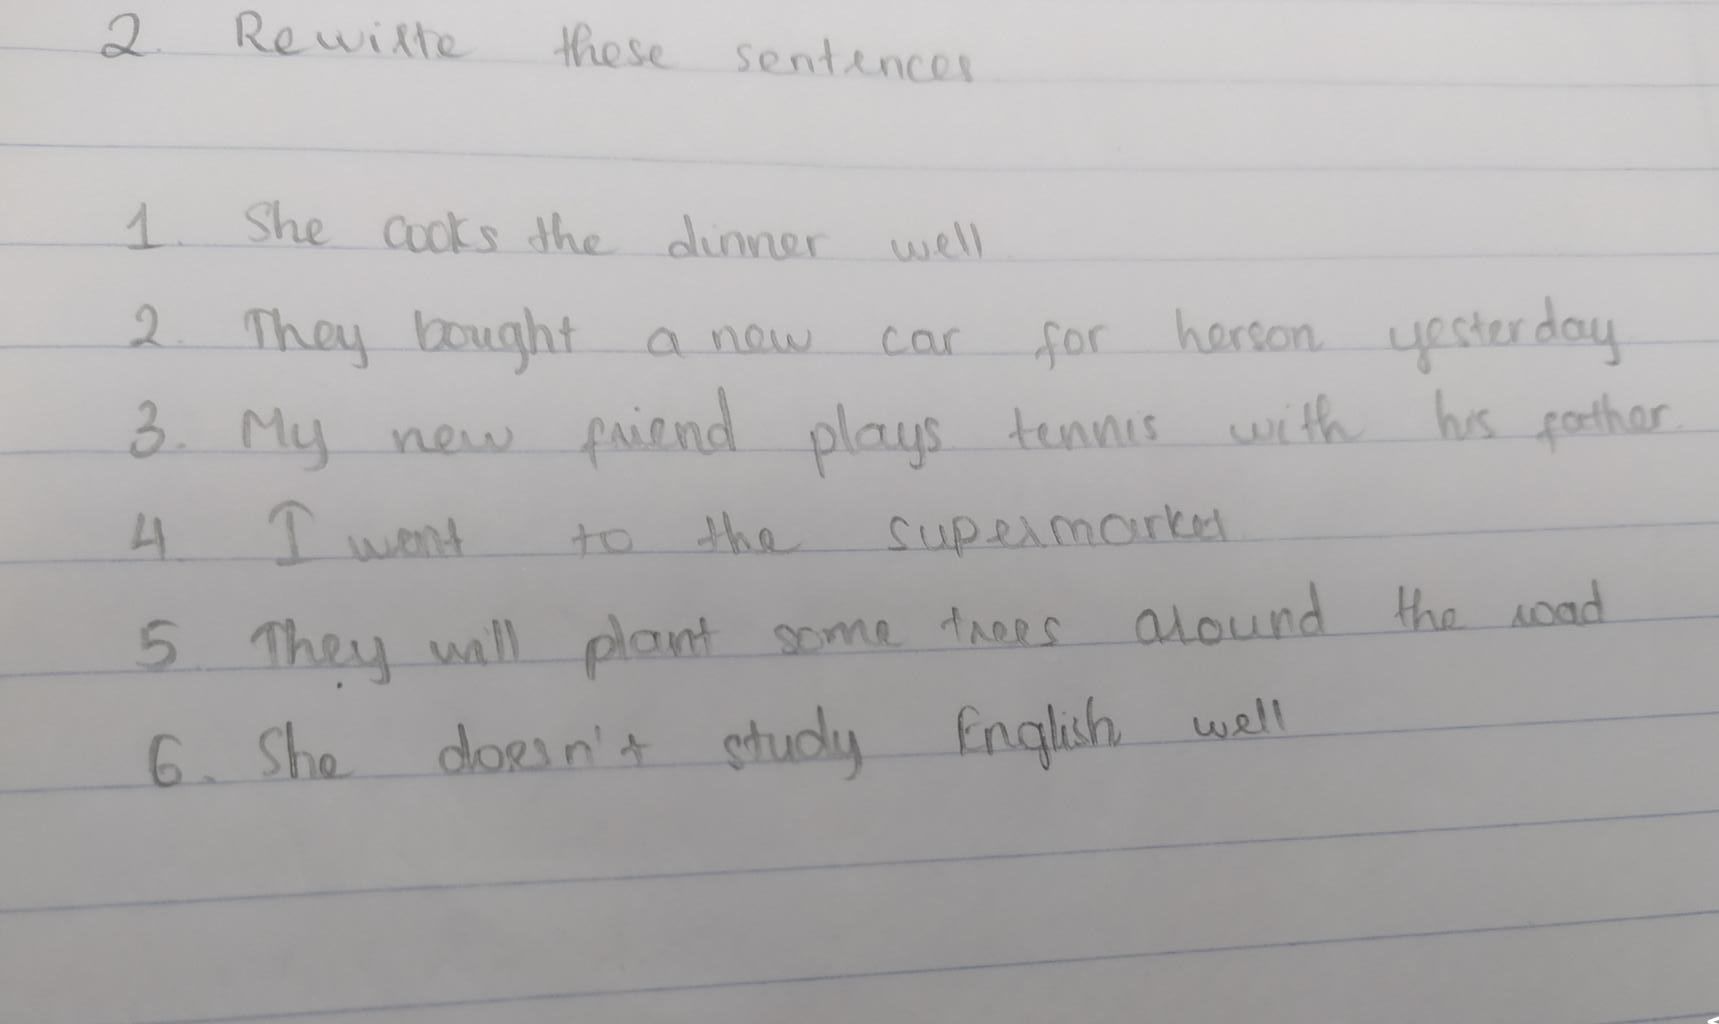 2. Rewirte these sentences
1. She cooks the dinner well
2. They bought a new car for herson yesterday
3. My new friend plays tennis with his father.
4 I went to the supermarket
5. They will plant some trees around the road
6. She doesn't study English well